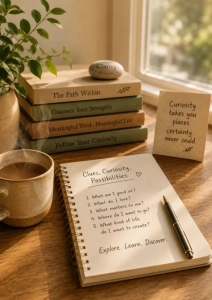 The Path Within
Discover Your Strengths
Meaningful Work, Meaningful Life
Follow Your Curiosity
Curiosity
takes you
places
certainty
never could.
Clues, Curiosity,
Possibilities
1. What am I good at?
2. What do I love?
3. What matters to me?
4. Where do I want to go?
5. What kind of life
do I want to create?
Explore. Learn. Discover.